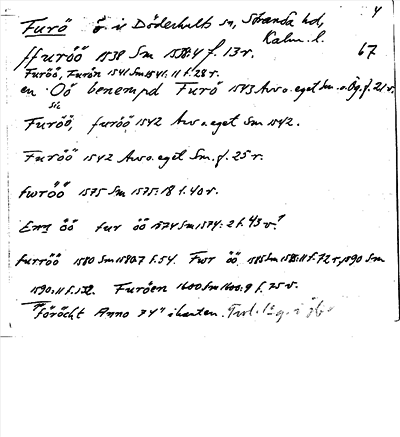 4
Furö ö. i Döderhults sn, Stranda hd,
Kalm. l.
ffuröö 1538 Sm 1538:4 f. 13 r. 67
Furöö, Furön 1541 Sm 1541:11 f. 28 r.
en Oö benempd Furö 1543 Av o. eget Sm. o. Ög. f. 21 v.
sic
Furöö, furöö 1542 Av o. eget Sm 1542.
Furöö 1542 Av o. eget Sm. f. 25 r.
fwröö 1575 Sm 1575:18 f. 40 r.
Enn öö fur öö 1574 Sm 1574:2 f. 43 v.
furröö 1580 Sm 1580:7 f. 54. Fwr öö 1585 Sm 1585:11 f. 72 r, 1590 Sm
1590:11 f. 132. Furöen 1600 Sm 1600:9 f. 75 v.
"Föröcht Anno 74" i kanten.